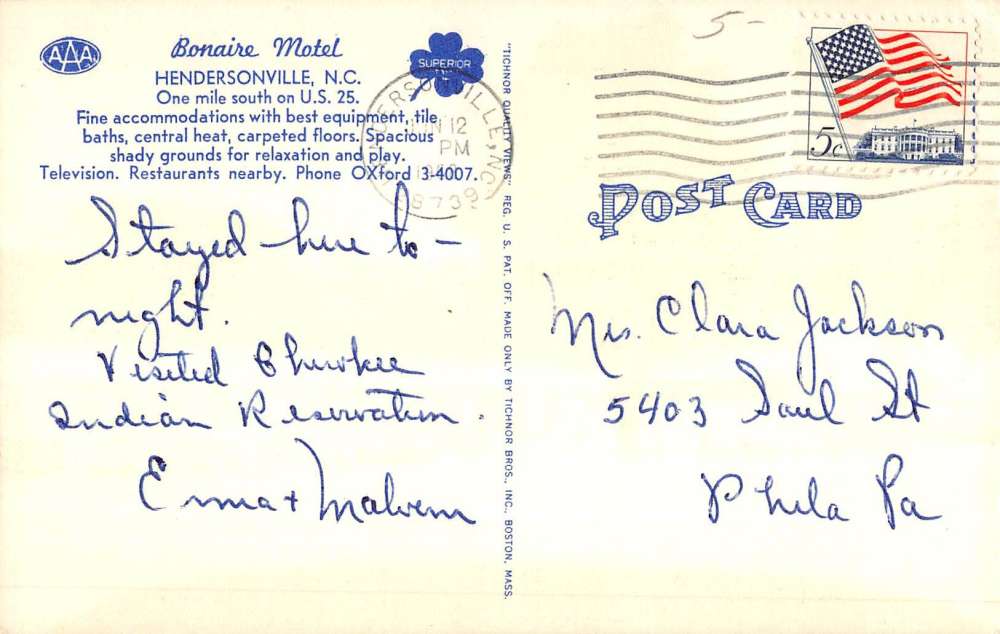 AAA
Bonaire Motel
HENDERSONVILLE, N.C.
One mile south on U.S. 25.
Fine accommodations with best equipment, tile
baths, central heat, carpeted floors. Spacious
shady grounds for relaxation and play.
Television. Restaurants nearby. Phone OXford 3-4007.
SUPERIOR
HENDERSONVILLE, N.C.
JUN 12
PM
28739
5-
5c
POST CARD
Stayed here to-
night.
Visited Cherokee
Indian Reservation.
Erma + Malvern
"TICHNOR QUALITY VIEWS" REG. U. S. PAT. OFF. MADE ONLY BY TICHNOR BROS., INC., BOSTON, MASS.
Mrs. Clara Jackson
5403 Saul St
Phila Pa